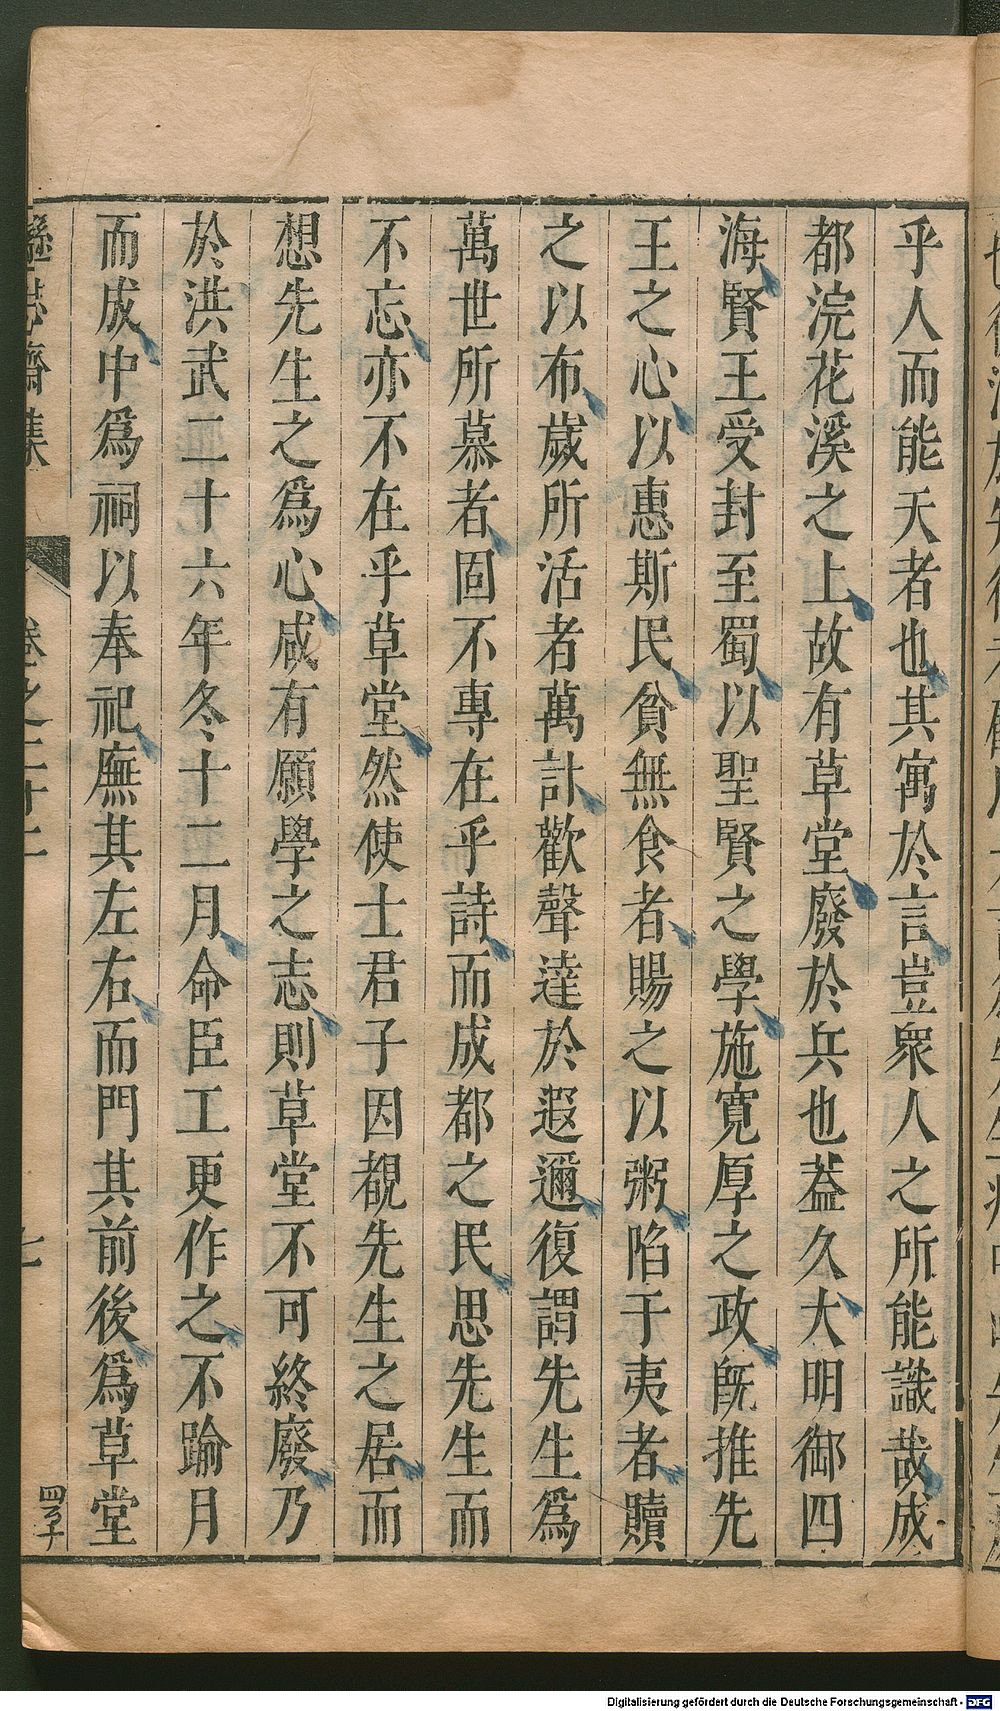 乎人而能天者也其寓於言豈衆人之所能識哉成
都浣花溪之上故有草堂廢於兵也葢久大明御四
海賢王受封至蜀以聖賢之學施寬厚之政旣推先
王之心以惠斯民貧無食者賜之以粥陷于夷者贖
之以布歲所活者萬計歡聲達於遐邇復謂先生爲
萬世所慕者固不專在乎詩而成都之民思先生而
不忘亦不在乎草堂然使士君子因覩先生之居而
想先生之爲心咸有願學之志則草堂不可終廢乃
於洪武二十六年冬十二月命臣工更作之不踰月
而成中爲祠以奉祀廡其左右而門其前後爲草堂
遜志齋集
卷之二十二
七
Digitalisierung gefördert durch die Deutsche Forschungsgemeinschaft - DFG